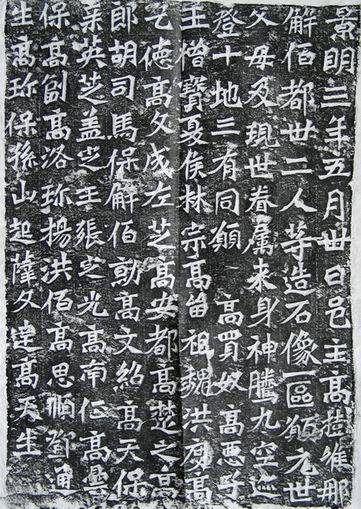 景明三年五月卅日邑主高樹維那
解佰都卅二人等造石像一區願元世
父母及現世眷屬來身神騰九空迹
登十地三有同願 高買奴高惡子
王僧寶夏侯林宗高留祖魏洪度高
乞德高文成左芝高安都高楚之高
郎胡司馬保解佰勍高文紹高天保
英芝蓋定王張定光高南仁高曇
保高副高洛珍楊洪佰高思順鄧通
生高珍保孫山起薛文達高天生